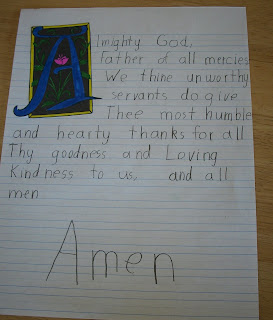 Almighty God,
Father of all mercies
We thine unworthy
servants do give
Thee most humble
and hearty thanks for all
Thy goodness and Loving
Kindness to us, and all
men
Amen